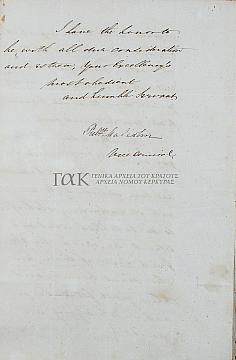 I have the honor to
be, with all due consideration
and esteem, Your Excellency's
most obedient
and humble Servant
Vice Admiral
ΓΑΚ ΓΕΝΙΚΑ ΑΡΧΕΙΑ ΤΟΥ ΚΡΑΤΟΥΣ
ΑΡΧΕΙΑ ΝΟΜΟΥ ΚΕΡΚΥΡΑΣ